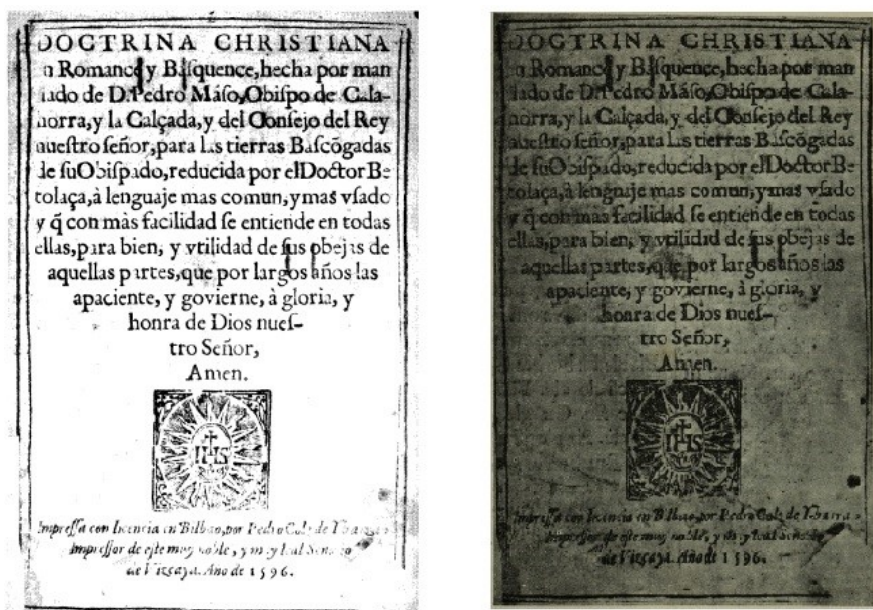 DOCTRINA CHRISTIANA
n Romance y Baſquence, hecha por man
dado de D. Pedro Máſo, Obiſpo de Cala-
horra, y la Calçada, y del Conſejo del Rey
nueſtro ſeñor, para las tierras Baſcõgadas
de ſu Obiſpado, reducida por el Doctor Be
tolaça, à lenguaje mas comun, y mas vſado
y q̃ con màs facilidad ſe entiende en todas
ellas, para bien, y vtilidad de ſus obejas de
aquellas partes, que por largos años las
apaciente, y govierne, à gloria, y
honra de Dios nueſ-
tro Señor,
Amen.
IHS
Impreſſa con licencia en Bilbao, por Pedro Cole de Ybarra
Impreſſor de eſte muy noble, y muy leal Señorio
de Vizcaya. Año de 1596.
DOCTRINA CHRISTIANA
n Romance y Baſquence, hecha por man
dado de D. Pedro Máſo, Obiſpo de Cala-
horra, y la Calçada, y del Conſejo del Rey
nueſtro ſeñor, para las tierras Baſcõgadas
de ſu Obiſpado, reducida por el Doctor Be
tolaça, à lenguaje mas comun, y mas vſado
y q̃ con mas facilidad ſe entiende en todas
ellas, para bien, y vtilidad de ſus obejas de
aquellas partes, que por largos años las
apaciente, y govierne, à gloria, y
honra de Dios nueſ-
tro Señor,
Amen.
IHS
Impreſſa con licencia en Bilbao, por Pedro Cole de Ybarra
Impreſſor de eſte muy noble, y muy leal Señorio
de Vizcaya. Año de 1596.